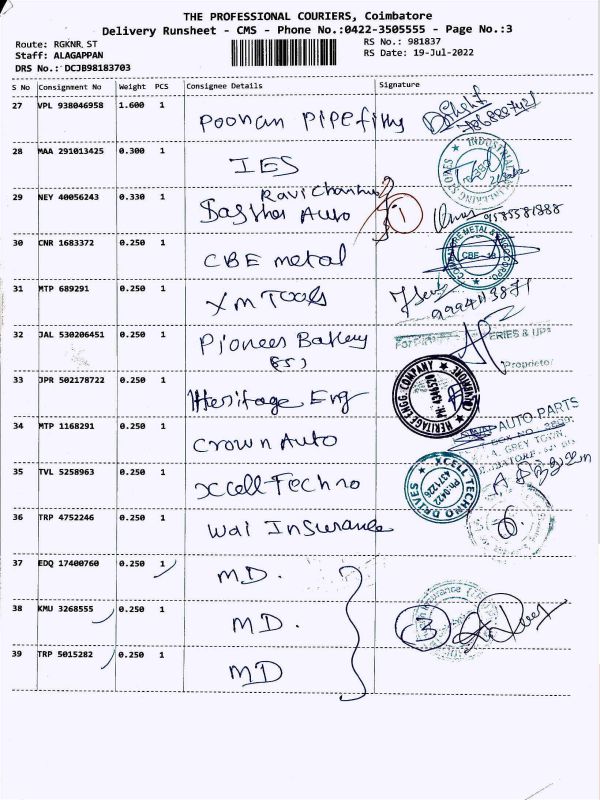 THE PROFESSIONAL COURIERS, Coimbatore
Delivery Runsheet - CMS - Phone No.:0422-3505555 - Page No.:3
Route: RGKNR ST
RS No.: 981837
Staff: ALAGAPPAN
RS Date: 19-Jul-2022
DRS No.: DCJB98183703
S No Consignment No Weight PCS Consignee Details Signature
27 VPL 938046958 1.600 1 Poonan Pipefitting
28 MAA 291013425 0.300 1 IES
INDUSTRIAL
STORES
Ravichandra
29 NEY 40056243 0.330 1 Auto 1 9585581888
30 CNR 1683372 0.250 1 CBE metal
COIMBATORE METAL &
CBE - 18
31 MTP 689291 0.250 1 XM Tools
32 JAL 530206451 0.250 1 Pioneer Battery
ERIES & UPS
Proprietor
33 JPR 502178722 0.250 1 Heritage Eng
HERITAGE ENGG. COMPANY
34 MTP 1168291 0.250 1 Crown Auto
AUTO PARTS
BOX NO.
4, GREY TOWN,
35 TVL 5258963 0.250 1 Xcell Techno
XCELL TECHNO DRIVES
Ph:0422
4371226
36 TRP 4752246 0.250 1 Insurance
6
37 EDQ 17400760 0.250 1 MD.
38 KMU 3268555 0.250 1 MD. 3
39 TRP 5015282 0.250 1 MD